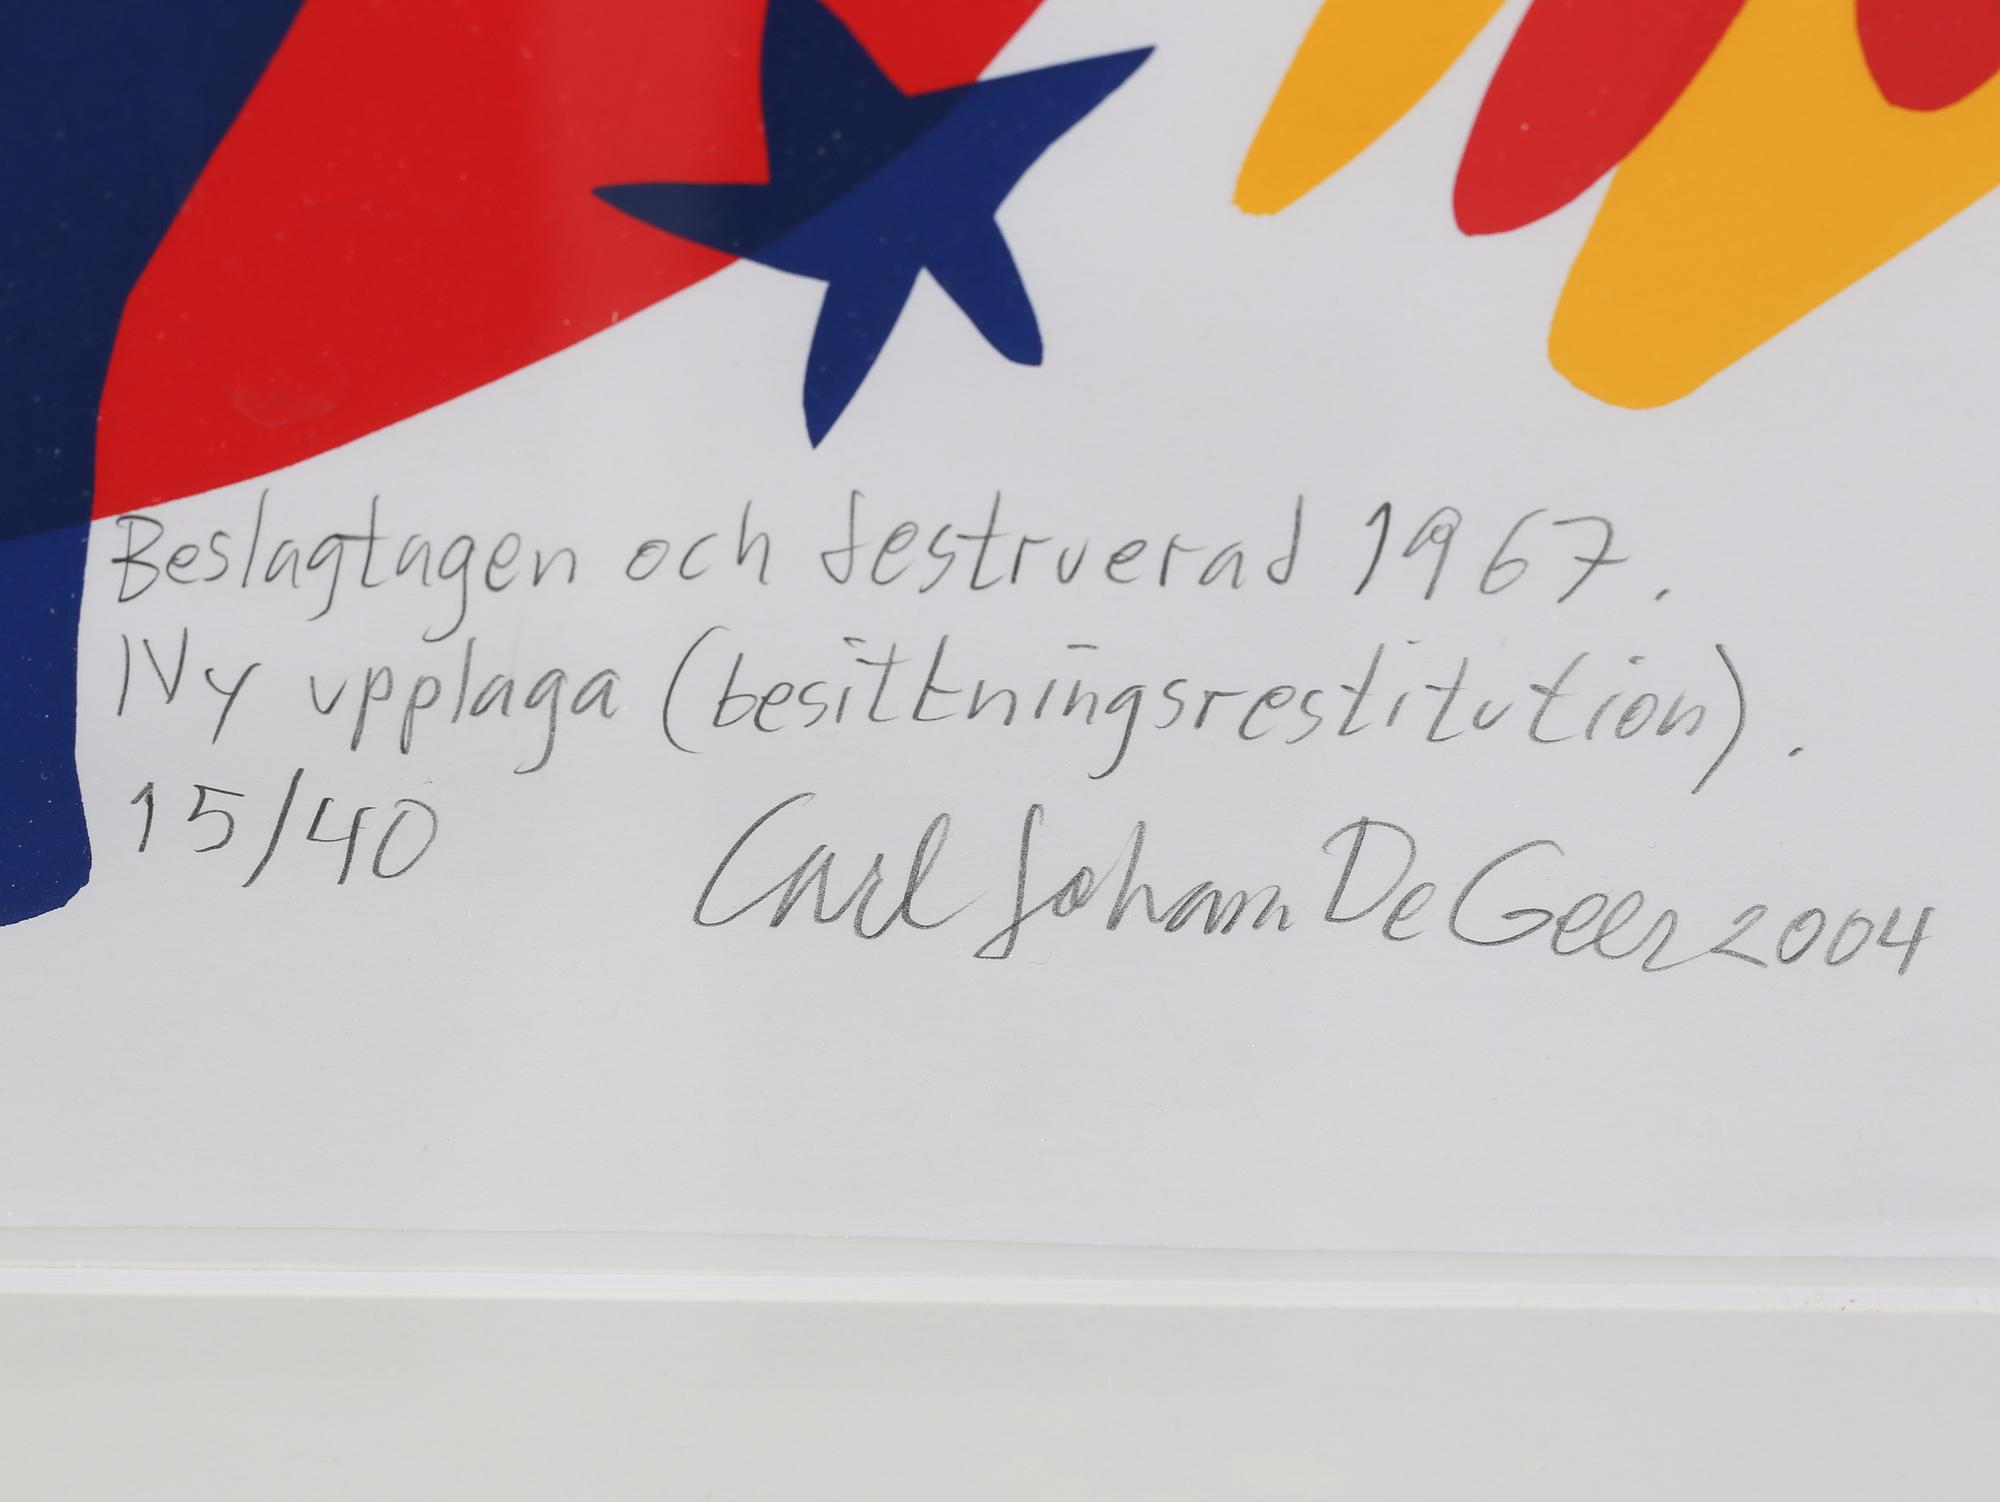 Beslagtagen och destruerad 1967.
Ny upplaga (besittningsrestitution).
15/40
Carl Johan De Geer 2004